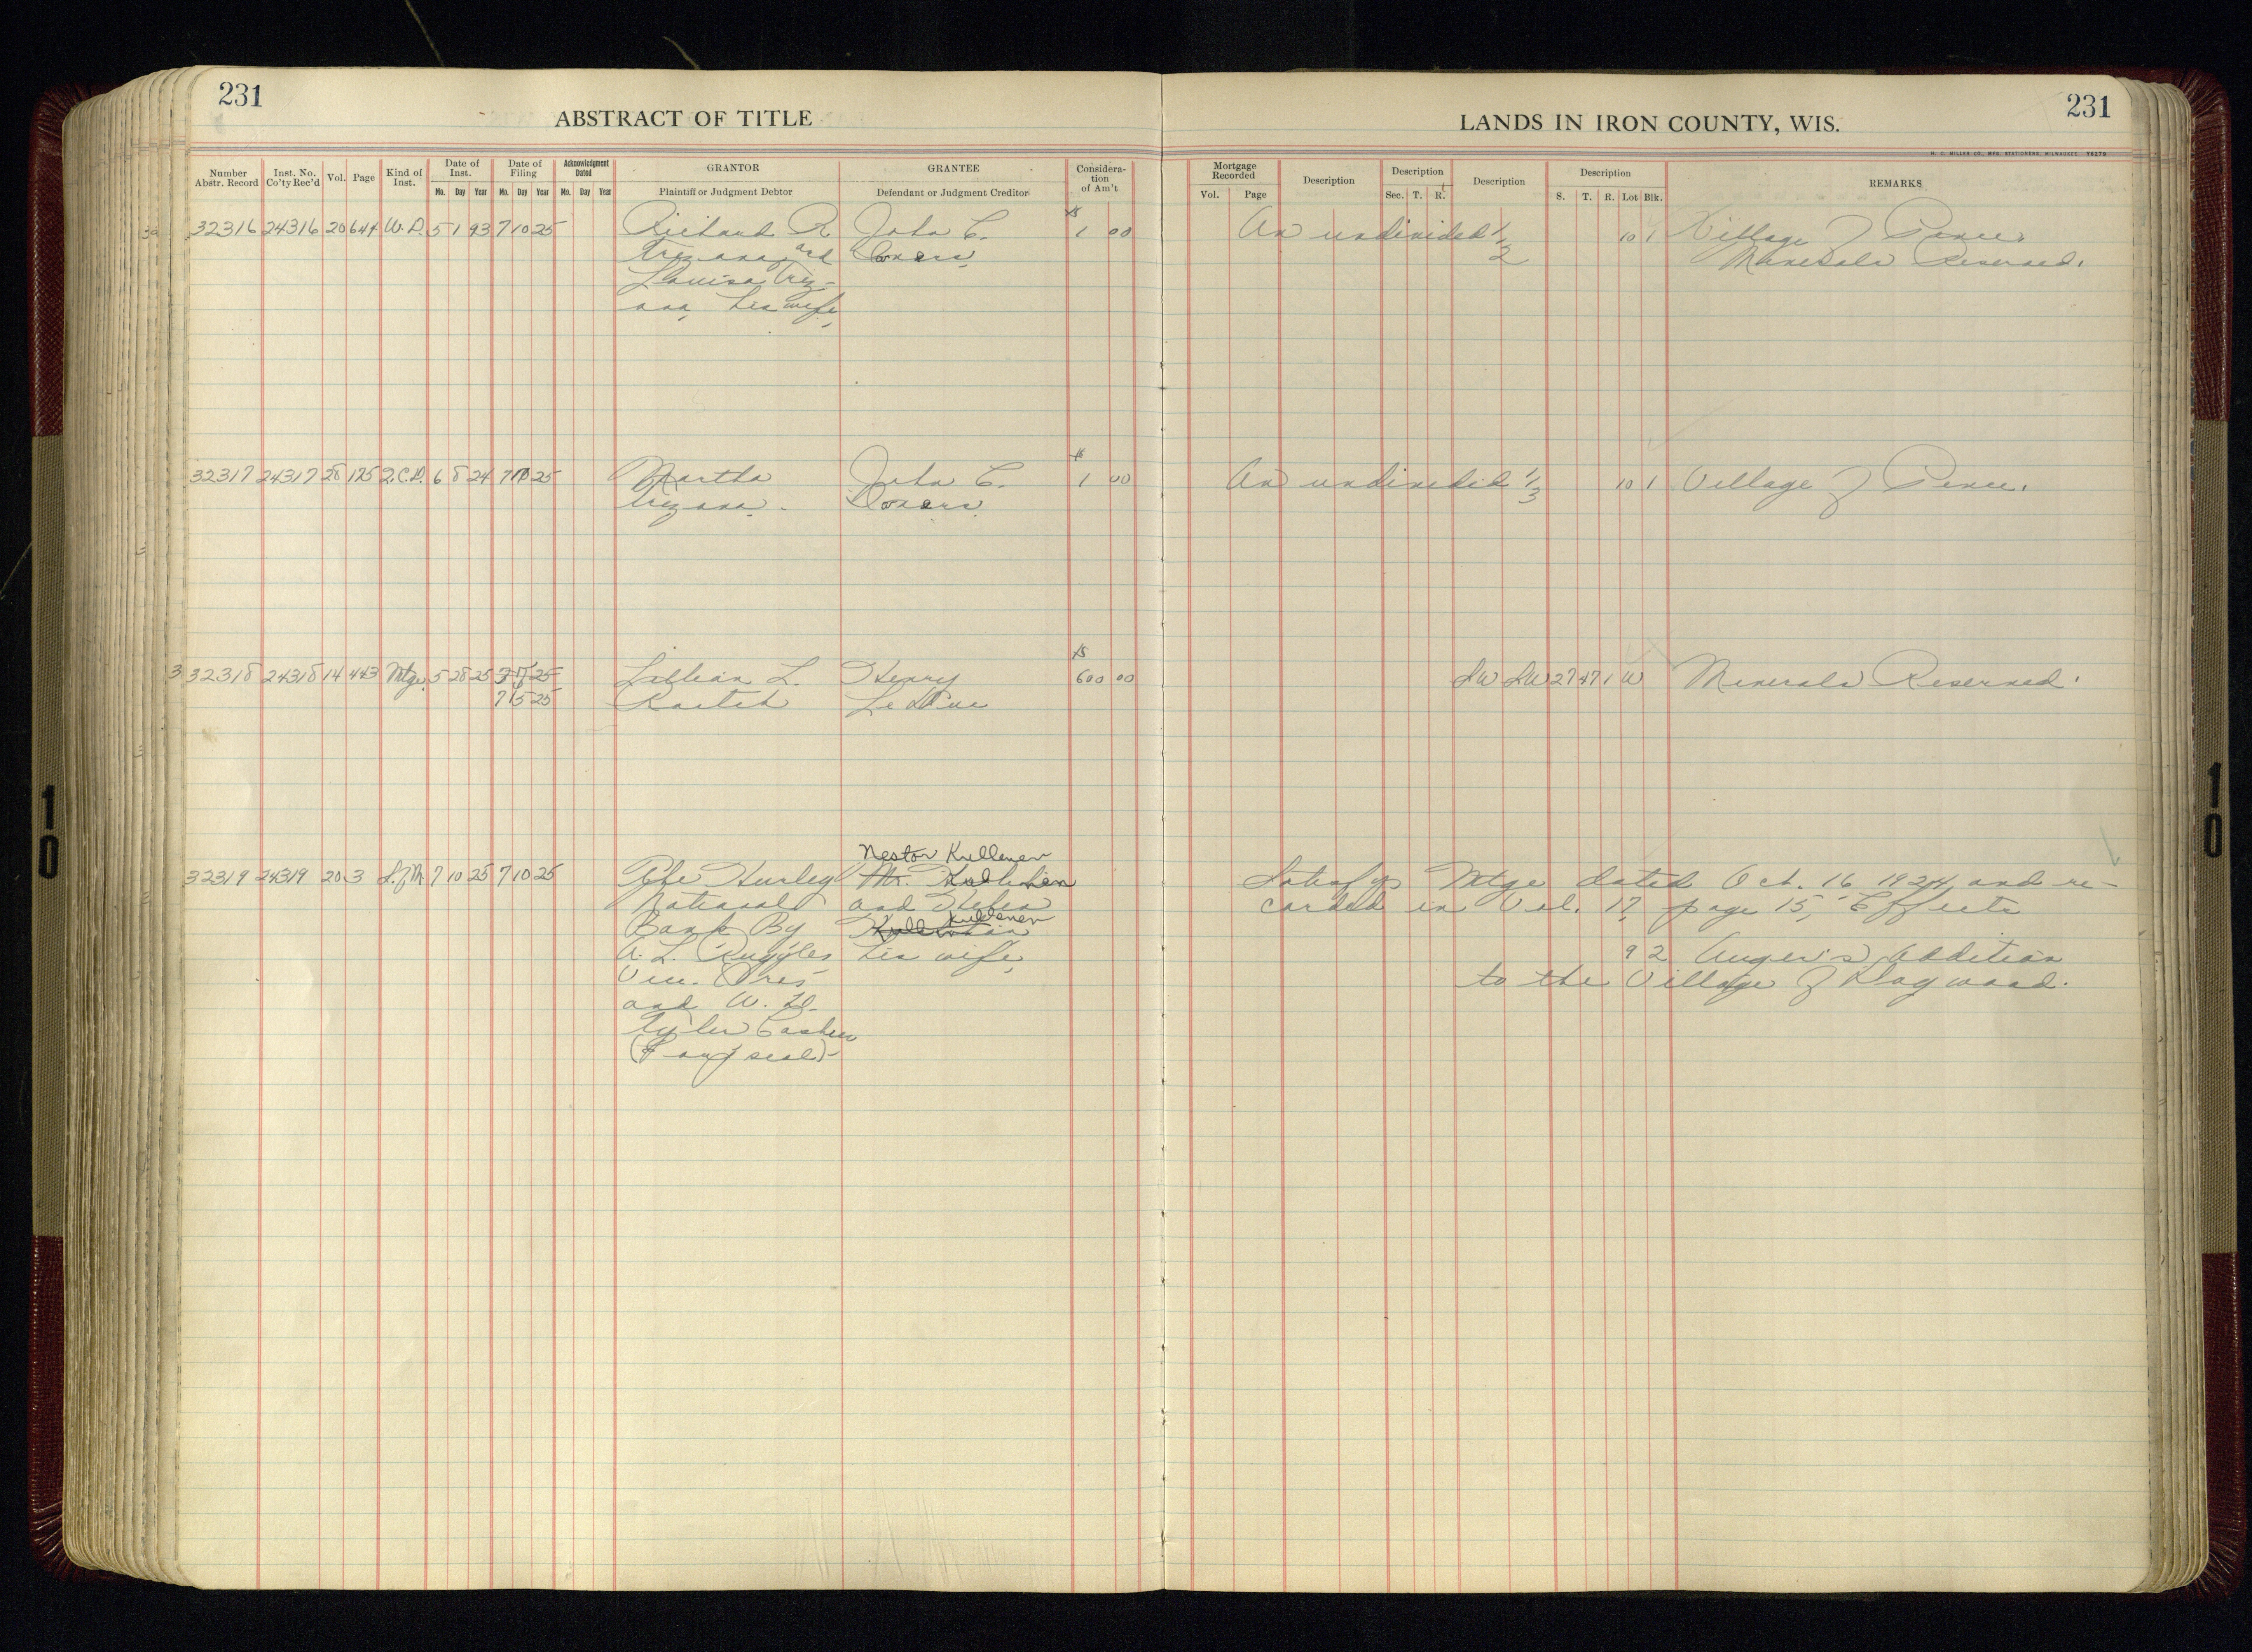 231
ABSTRACT OF TITLE
LANDS IN IRON COUNTY, WIS.
231
H. C. MILLER CO., MFG. STATIONERS, MILWAUKEE Y6279
Number Abstr. Record | Inst. No. Co'ty Rec'd | Vol. | Page | Kind of Inst. | Date of Inst. Mo. Day Year | Date of Filing Mo. Day Year | Acknowledgment Dated Mo. Day Year | GRANTOR Plaintiff or Judgment Debtor | GRANTEE Defendant or Judgment Creditor | Considera-tion of Am't | Mortgage Recorded Vol. Page | Description | Description Sec. T. R. | Description | Description S. T. R. Lot Blk. | REMARKS
32316 24316 20 644 W.D. 5 1 93 7 10 25 Richard R John C. $ 1 00 An undivided 1/2 10 1 Village of Pence.
Trezona and Coners Minerals Reserved.
Louisa Trez-
ona, his wife,
32317 24317 28 125 Q.C.D. 6 8 24 7 10 25 Martha John C. $ 1 00 An undivided 1/3 10 1 Village of Pence.
Trezona. Coners
32318 24318 14 443 Mtge. 5 28 25 25 Lillian L. Henry $ 600 00 SW SW 27 47 1 W Minerals Reserved.
7 15 25 LeDuc
Nestor Kullenen
32319 24319 20 3 S.of M. 7 10 25 7 10 25 The Hurley Mr. Satisfys Mtge dated Oct. 16 1924, and re-
National and corded in Vol. 17, page 15, Effects
Bank By Kullenen
A. L. Ruggles his wife, 9 2 Auger's Addition
Vice. Pres to the Village of Dogwood.
and W. H.
Tyler Cashier
seal)
10
10